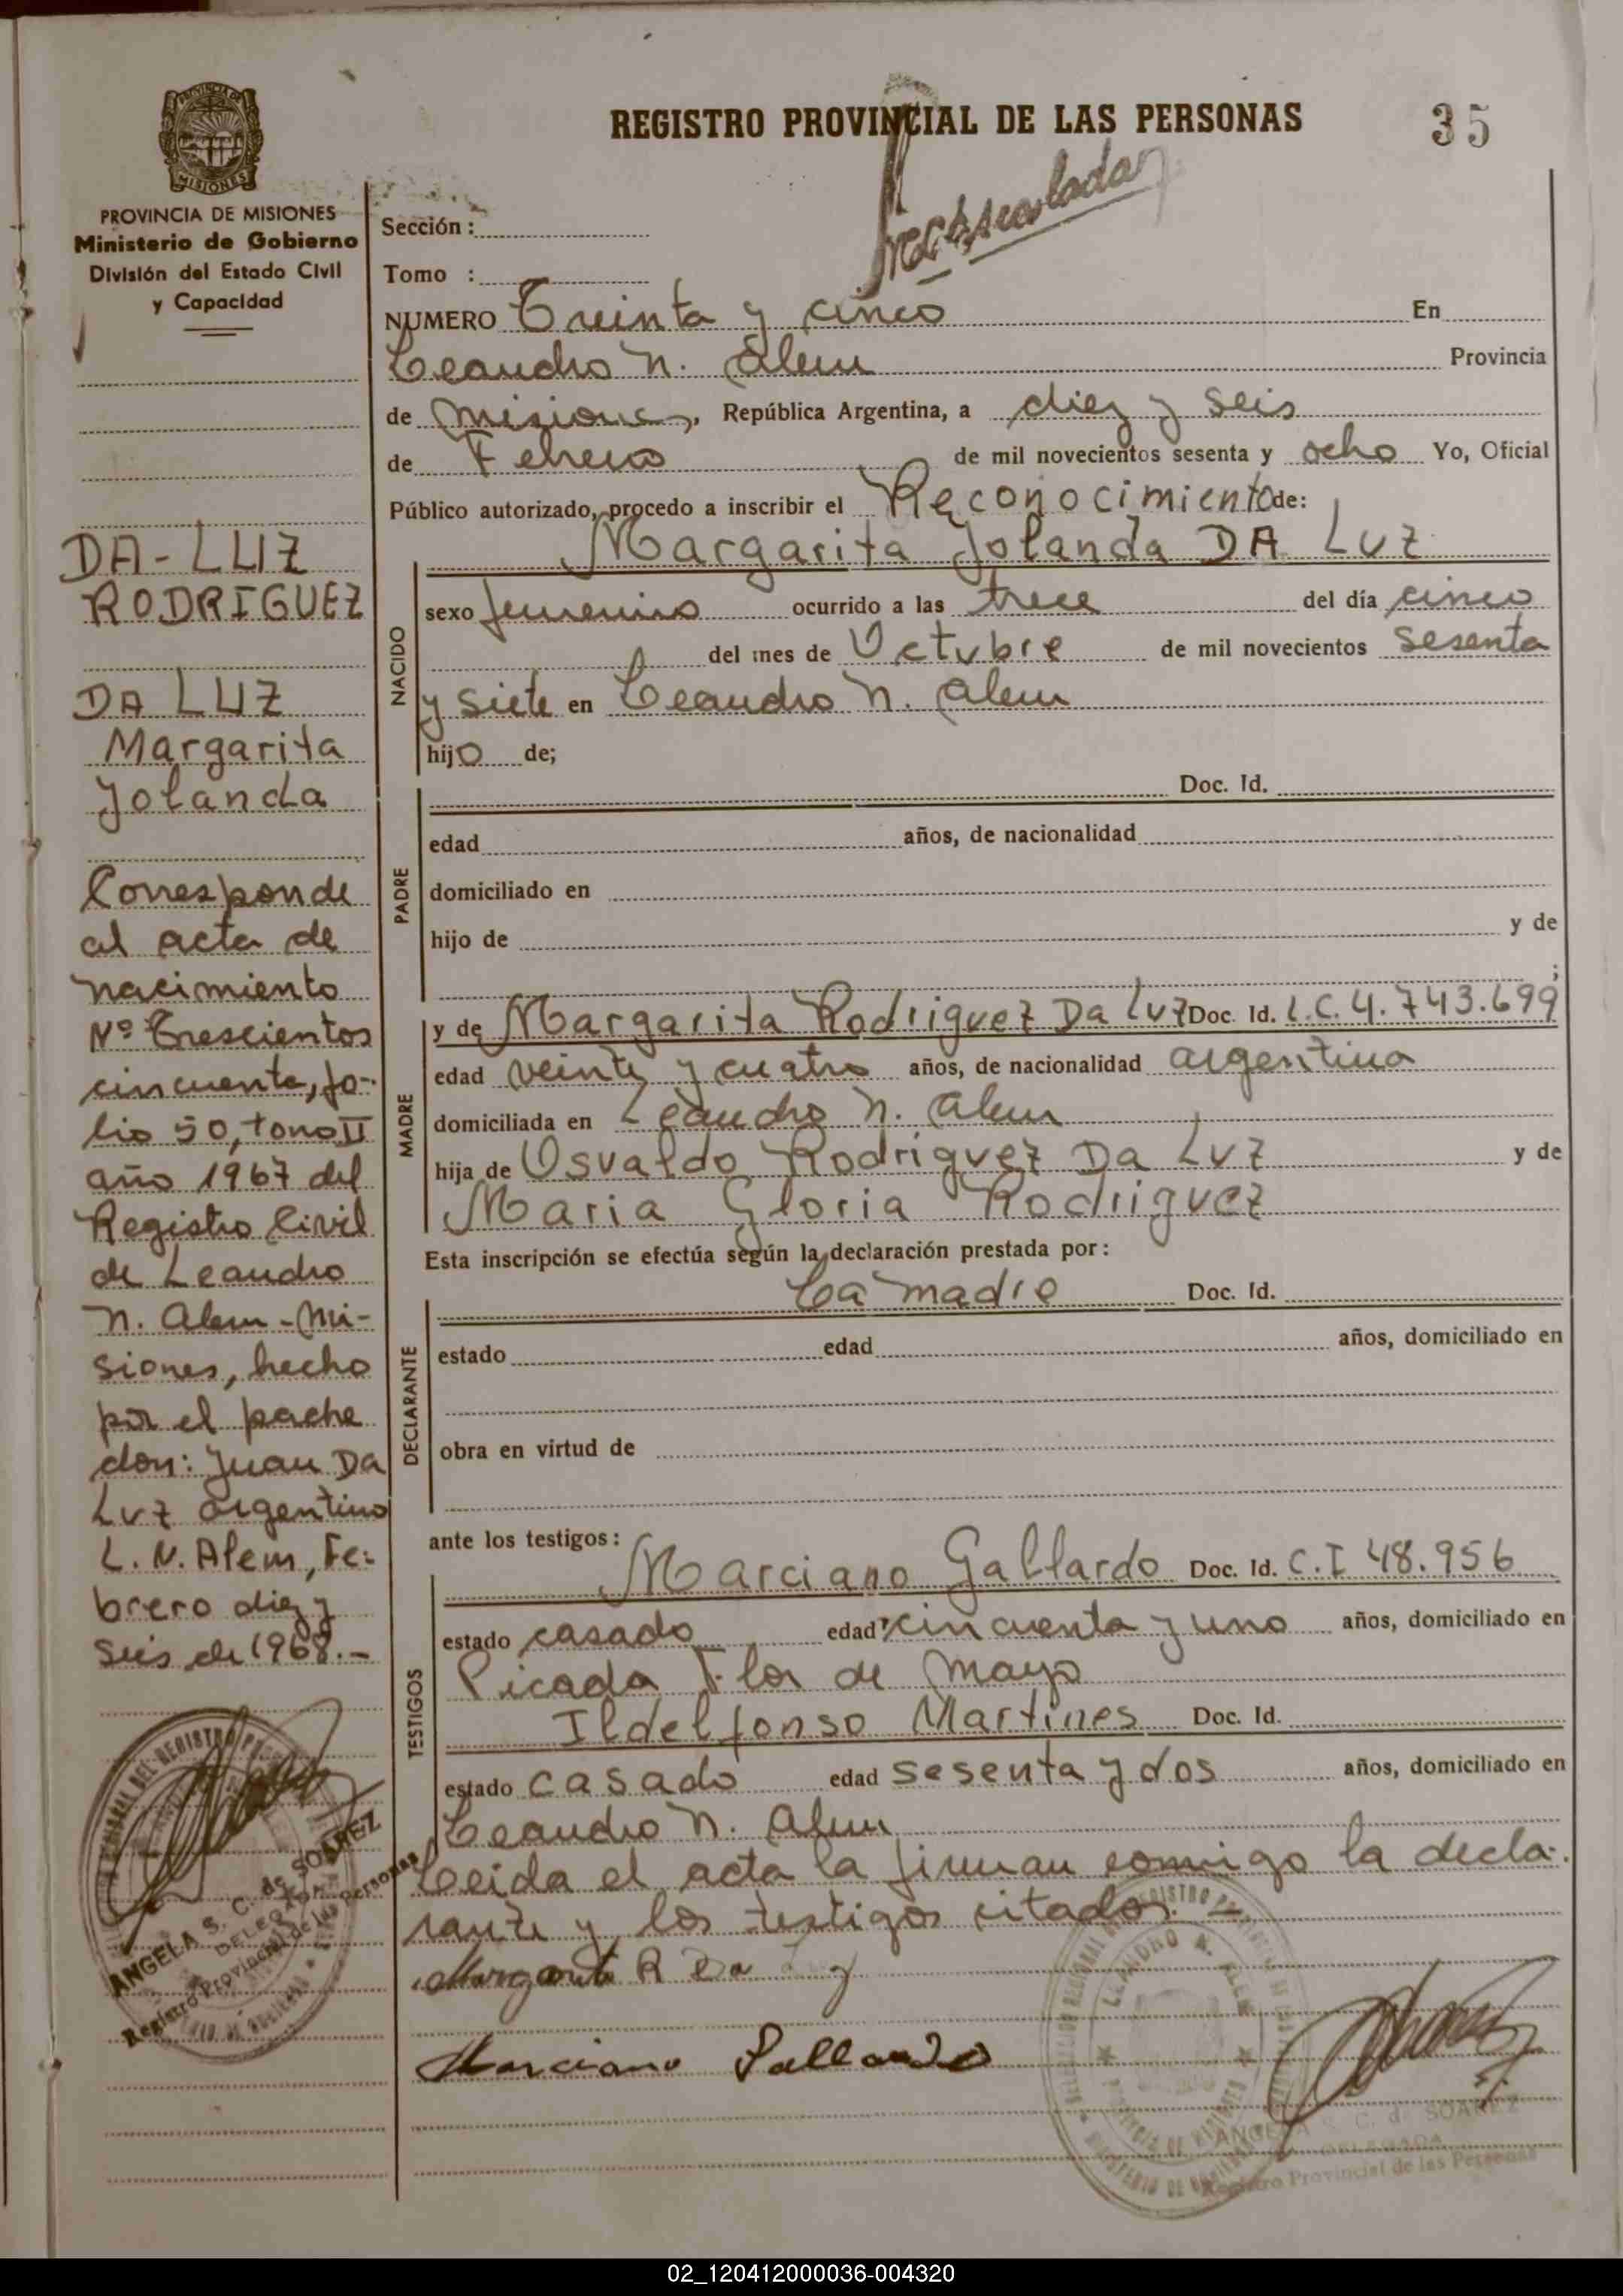 REGISTRO PROVINCIAL DE LAS PERSONAS
35
PROVINCIA DE MISIONES
Ministerio de Gobierno
División del Estado Civil
y Capacidad
MISIONES
DA-LUZ
RODRIGUEZ
DA LUZ
Margarita
Jolanda
Corresponde
al acta de
nacimiento
Nº Trescientos
cincuenta, fo-
lio 50, tomo II
año 1967 del
Registro Civil
de Leandro
N. Alem - Mi-
siones, hecho
por el padre
don: Juan Da
Luz argentino
L. N. Alem, Fe-
brero diez y
seis de 1968.-
ANGELA S. C. de SOAREZ
DELEGADA
Registro Provincial de las Personas
Sección :
Tomo :
NUMERO Treinta y cinco En
Leandro N. Alem Provincia
de Misiones, República Argentina, a diez y seis
de Febrero de mil novecientos sesenta y ocho Yo, Oficial
Público autorizado, procedo a inscribir el Reconocimiento de:
Margarita Jolanda DA LUZ
NACIDO
sexo femenino ocurrido a las trece del día cinco
del mes de Octubre de mil novecientos sesenta
y siete en Leandro N. Alem
hijo de;
PADRE
Doc. Id.
edad años, de nacionalidad
domiciliado en
hijo de y de
;
MADRE
y de Margarita Rodriguez Da Luz Doc. Id. L.C. 4.743.699
edad veinte y cuatro años, de nacionalidad argentina
domiciliada en Leandro N. Alem
hija de Osvaldo Rodriguez Da Luz y de
Maria Gloria Rodriguez
Esta inscripción se efectúa según la declaración prestada por:
DECLARANTE
La madre Doc. Id.
estado edad años, domiciliado en
obra en virtud de
ante los testigos:
TESTIGOS
Marciano Gallardo Doc. Id. C.I 48.956
estado casado edad cincuenta y uno años, domiciliado en
Picada Flor de Mayo
Ildelfonso Martines Doc. Id.
estado casado edad sesenta y dos años, domiciliado en
Leandro N. Alem
Leida el acta la firman conmigo la decla-
rante y los testigos citados.
Margarita R Da
Marciano Gallardo
LEANDRO N. ALEM
ANGELA S. C. de SOAREZ
DELEGADA
Registro Provincial de las Personas
02_120412000036-004320